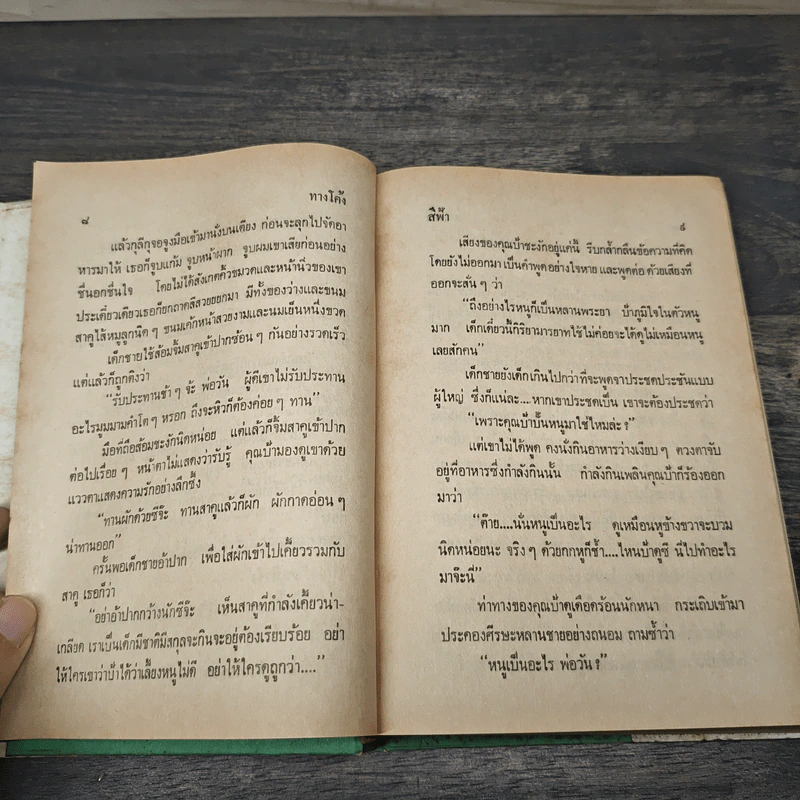 ทางโค้ง
๘
แล้วกุลีกุจอจูงมือเข้ามานั่งบนเตียง ก่อนจะลุกไปจัดอา
หารมาให้ เธอก็จูบแก้ม จูบหน้าผาก จูบผมเขาเสียก่อนอย่าง
ชื่นอกชื่นใจ โดยไม่ได้สังเกตคิ้วขมวดและหน้านิ่วของเขา
ประเดี๋ยวเดียวเธอก็ยกถาดสีสวยยยกมา มีทั้งของว่างและขนม
สาคูไส้หมูลูกนิดๆ ขนมเค้กหน้าสวยงามและนมเย็นหนึ่งขวด
เด็กชายใช้ส้อมจิ้มสาคูเข้าปากซ้อนๆ กันอย่างรวดเร็ว
แต่แล้วก็ถูกติงว่า
“รับประทานช้าๆ จ้ะ พ่อวัน ผู้ดีเขาไม่รับประทาน
อะไรมูมมามคำโตๆ หรอก ถึงจะหิวก็ต้องค่อยๆ ทาน”
มือที่ถือส้อมชะงักนิดหน่อย แต่แล้วก็จิ้มสาคูเข้าปาก
ต่อไปเรื่อยๆ หน้าตาไม่แสดงว่ารับรู้ คุณป้ามองดูเขาด้วย
แววตาแสดงความรักอย่างลึกซึ้ง
“ทานผักด้วยซีจ๊ะ ทานสาคูแล้วก็ผัก ผักกาดอ่อนๆ
น่าทานออก”
ครั้นพอเด็กชายอ้าปาก เพื่อใส่ผักเข้าไปเคี้ยวรวมกับ
สาคู เธอก็ว่า
“อย่าอ้าปากกว้างนักซีจ๊ะ เห็นสาคูที่กำลังเคี้ยวน่า-
เกลียด เราเป็นเด็กมีชาติมีสกุลจะกินจะอยู่ต้องเรียบร้อย อย่า
ให้ใครเขาว่าป้าได้ว่าเลี้ยงหนูไม่ดี อย่าให้ใครดูถูกว่า....”
สีฟ้า
๙
เสียงของคุณป้าชะงักอยู่แค่นี้ รีบกล้ำกลืนข้อความที่คิด
โดยยังไม่ออกมา เป็นคำพูด อย่างใจหาย และพูดต่อ ด้วยเสียงที่
ออกจะสั่นๆ ว่า
“ถึงอย่างไรหนูก็เป็นหลานพระยา ป้าภูมิใจในตัวหนู
มาก เด็กเดี๋ยวนี้กิริยามารยาทใช้ไม่ค่อยจะได้ดูไม่เหมือนหนู
เลยสักคน”
เด็กชายยังเด็กเกินไปกว่าที่จะพูดจาประชดประชันแบบ
ผู้ใหญ่ ซึ่งก็แน่ละ....หากเขาประชดเป็น เขาจะต้องประชดว่า
“เพราะคุณป้าปั้นหนูมาใช่ไหมล่ะ?”
แต่เขาไม่ได้พูด คงนั่งกินอาหารว่างเงียบๆ ดวงตาจับ
อยู่ที่อาหารซึ่งกำลังกินนั้น กำลังกินเพลินคุณป้าก็ร้องออก
มาว่า
“ต๊าย....นั่นหนูเป็นอะไร ดูเหมือนหูข้างขวาจะบวม
นิดหน่อยนะ จริงๆ ด้วยกกหูก็ช้ำ....ไหนป้าดูซี นี่ไปทำอะไร
มาจ๊ะนี่”
ท่าทางของคุณป้าดูเดือดร้อนนักหนา กระเถิบเข้ามา
ประคองศีรษะหลานชายอย่างถนอม ถามซ้ำว่า
“หนูเป็นอะไร พ่อวัน?”